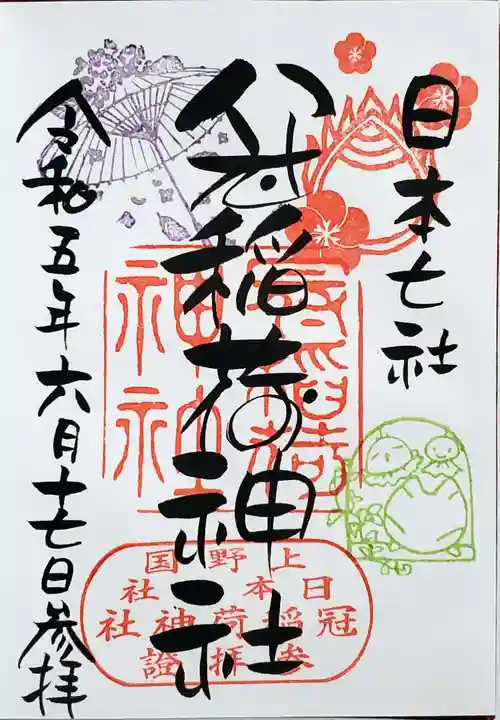 日本七社
冠稲荷神社
令和五年六月十七日参拝
上野国
日本社
冠稲荷神社
参拝證